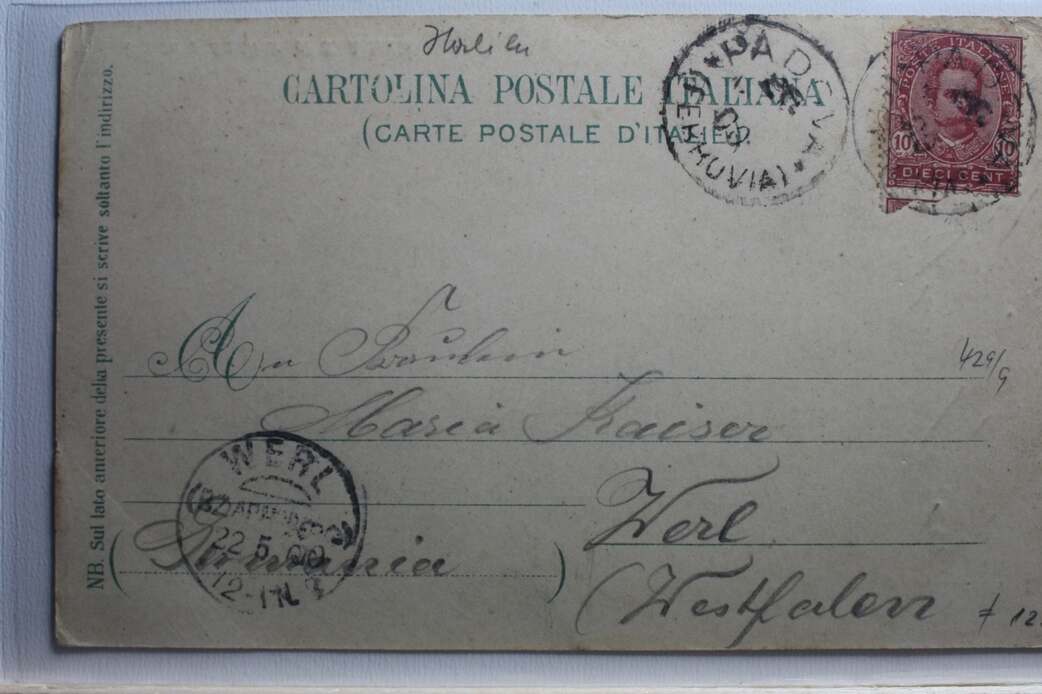 Italien
CARTOLINA POSTALE ITALIANA
(CARTE POSTALE D'ITALIE)
PADOVA
(FERROVIA)
POSTE ITALIANE
10 10
DIECI CENT
PADOVA
NB. Sul lato anteriore della presente si scrive soltanto l'indirizzo.
An Fräulein
429/9
Maria Kaiser
WERL
22 5 00
12-1N.
Werl
(Germania)
(Westfalen